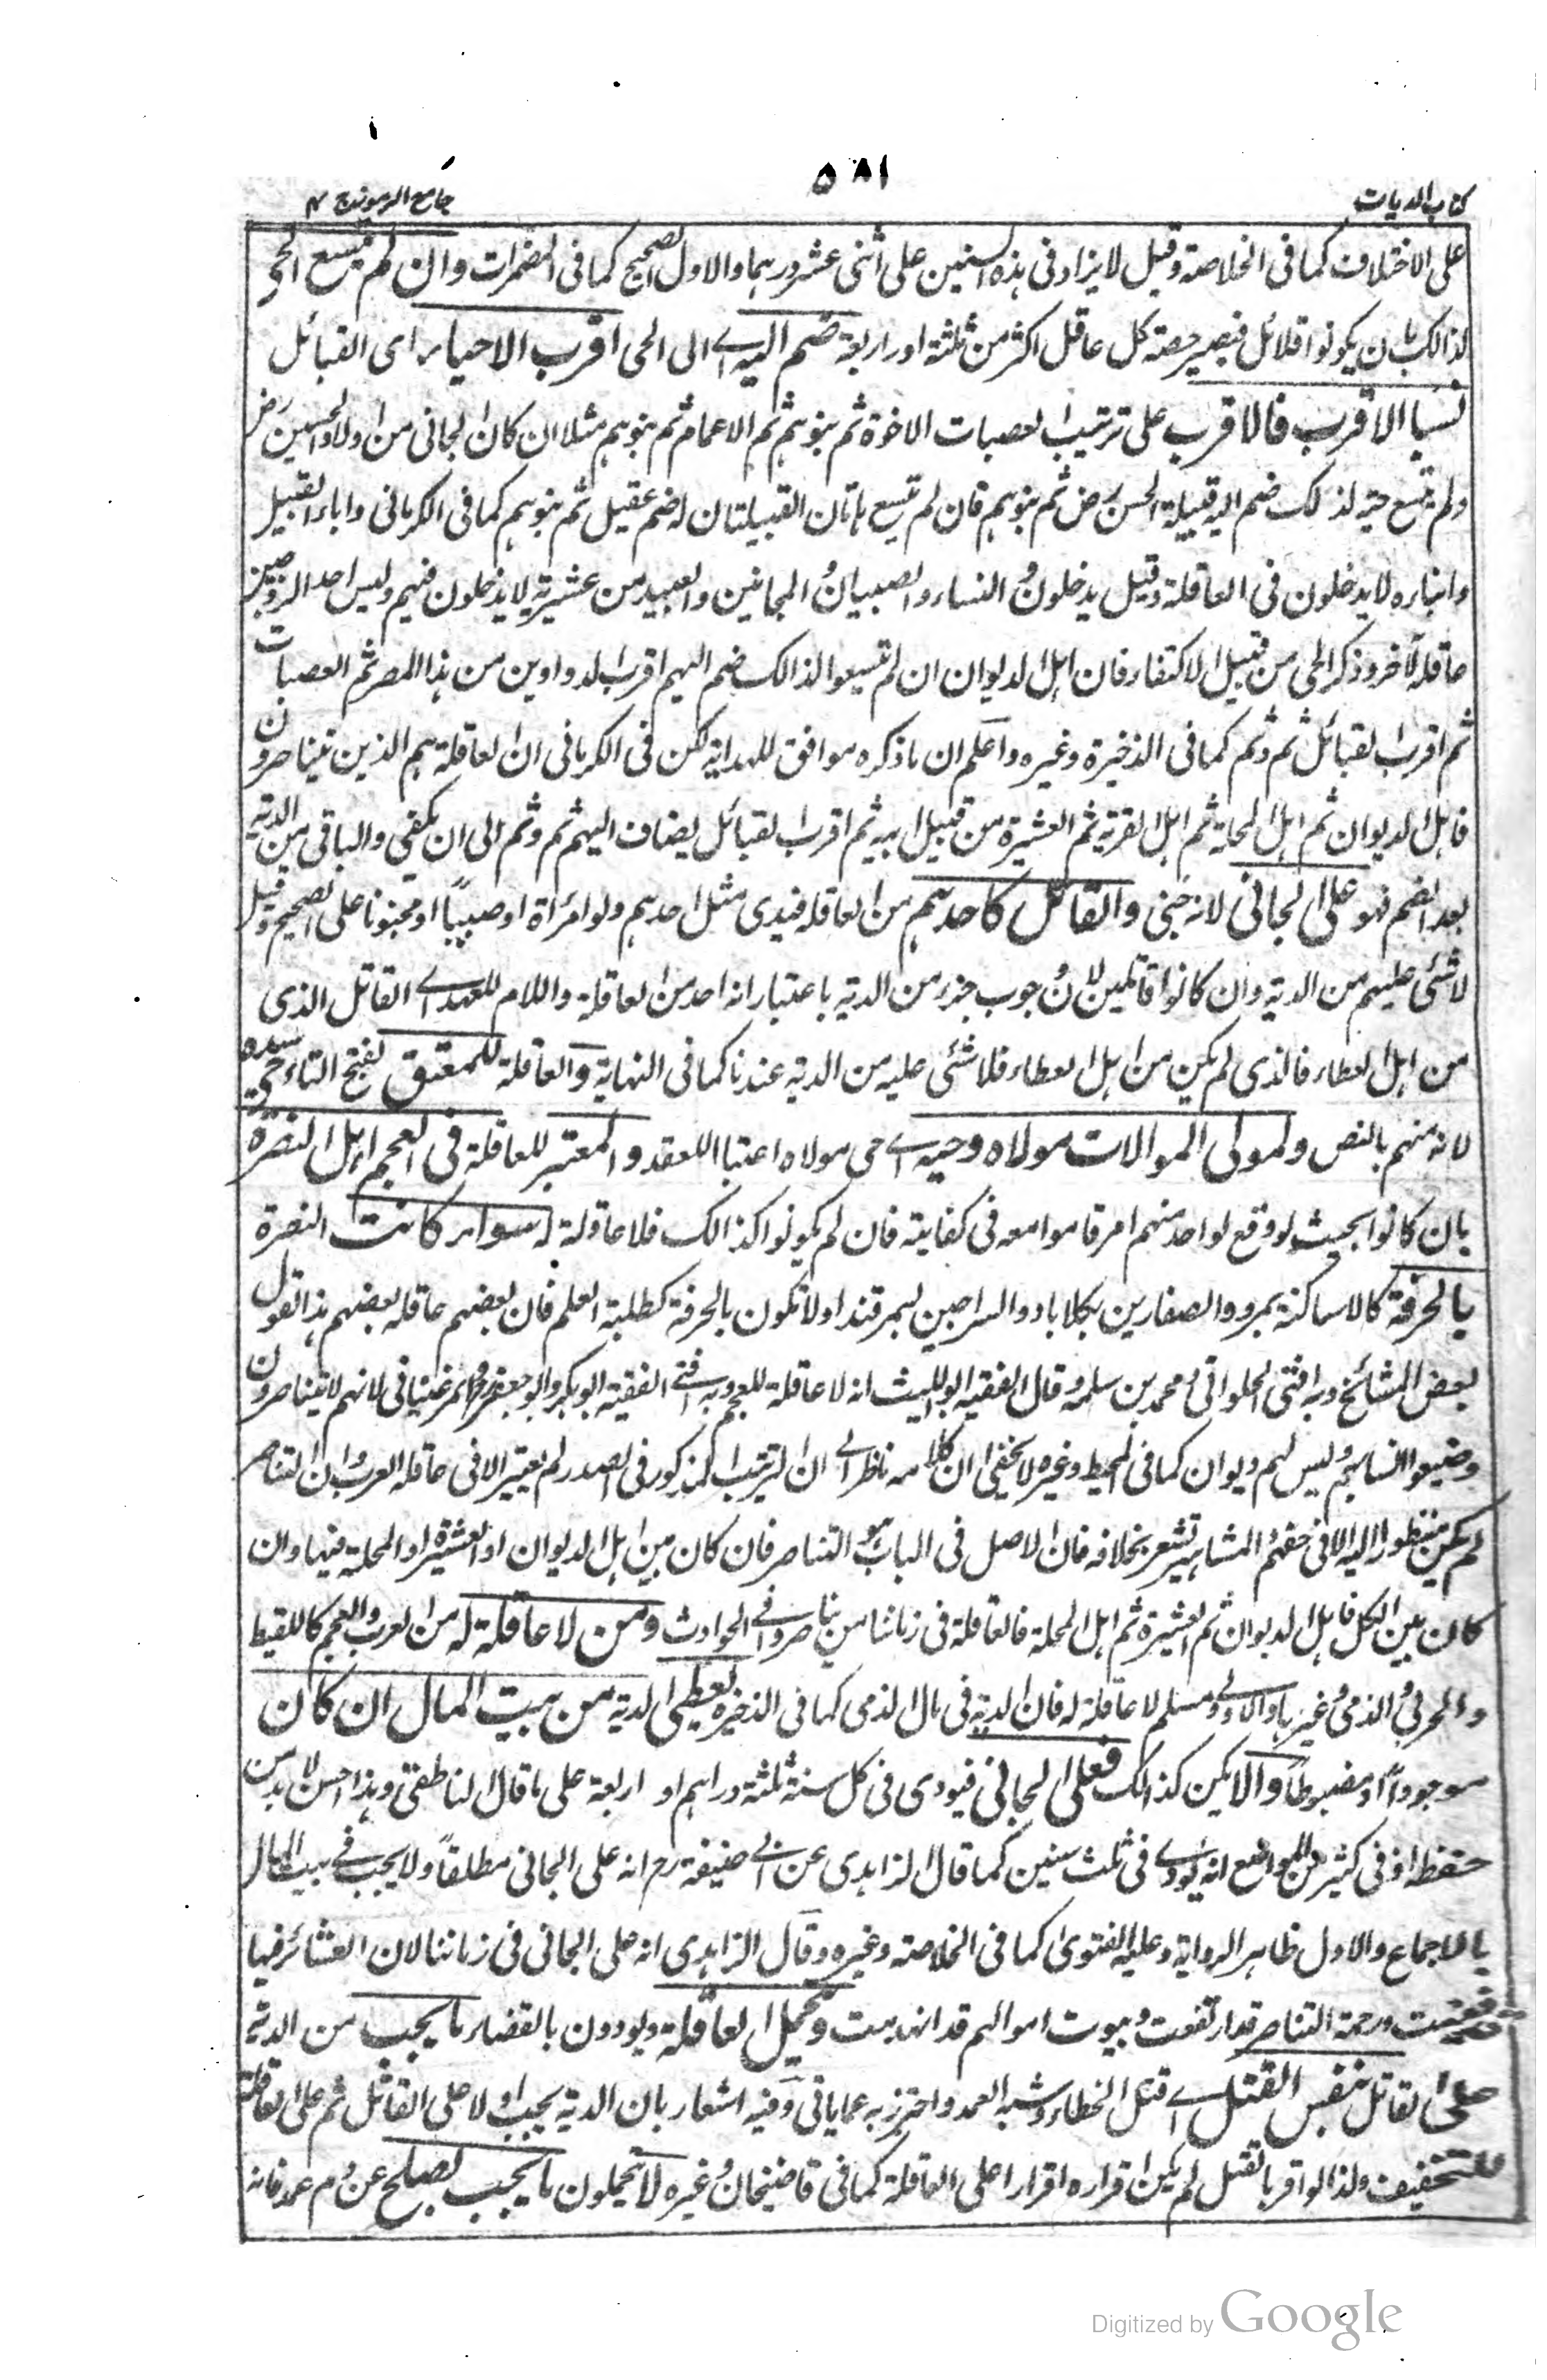 كتاب الديات
٥٨١
جامع الرموز ج ٢
على الاختلاف كما فى الخلاصة وقيل لا يزاد فى هذه السنين على اثنى عشر درهما والاول الصحيح كما فى المضمرات وان لم يتسع الحى
لذالك بان يكونوا قلائل فيصير حصة كل عاقل اكثر من ثلثة او اربعة ضم اليه اے الى الحى اقرب الاحياء اى القبائل
نسبا الاقرب فالاقرب على ترتيب العصبات الاخوة ثم بنوهم ثم الاعمام ثم بنوهم مثلا ان كان الجانى من اولاد الحسين رض
ولم يتسع حيه لذلك ضم اليه قبيلة الحسن رض ثم بنوهم فان لم تتسع هاتان القبيلتان له ضم عقيل ثم بنوهم كما فى الكرمانى واباء القبيل
وابناره لا يدخلون فى العاقلة وقيل يدخلون والنساء والصبيان والمجانين والعبيد من عشيرته لا يدخلون فيهم وليس احد الزوجين
عاقلة لآخر وذكر الحى من قبيل الاكتفاء فان اهل الديوان ان لم تتسعوا لذالك ضم اليهم اقرب الدواوين من هذا المصر ثم العصبات
ثم اقرب القبائل ثم وثم كما فى الذخيرة وغيره واعلم ان ما ذكره موافق للهداية لكن فى الكرمانى ان العاقلة هم الذين يتناصرون
فاهل الديوان ثم اهل المحلة ثم اهل القرية ثم العشيرة من قبيل ابيه ثم اقرب القبائل يضاف اليهم ثم وثم الى ان يكفى والباقى من الدية
بعد الضم فهو على الجانى لانه جنى والقاتل كاحدهم من العاقله فيدى مثل احدهم ولو امرأة او صبيا او مجنونا على الصحيح وقيل
لا شئى عليهم من الدية وان كانوا قاتلين لان وجوب جزء من الدية باعتبار انه احد من العاقلة واللام للعهد اے القاتل الذى
من اهل العطاء فالذى لم يكن من اهل العطاء فلا شئى عليه من الدية عندنا كما فى النهاية والعاقلة للمعتق بفتح التاء حى سيده
لانه منهم بالنص ولمولى الموالات مولاه وحيه اے حى مولاه اعتبا اللعقد والمعتبر للعاقلة فى العجم اهل النصرة
بان كانوا بحيث لو وقع لواحد منهم امر قاموا معه فى كفايته فان لم يكونوا كذالك فلا عاقلة له سواء كانت النصرة
بالحرفة كالاساكنة بمرو والصفارين بكلاباد والسراجين بسمرقند اولا تكون بالحرفة كطلبة العلم فان بعضهم عاقله بعضهم هذا القول
بعض المشائخ وبه افتى الحلوانى ومحمد بن سلمه وقال الفقيه ابو الليث انه لا عاقلة للعجم وبه افتے الفقيه ابو بكر وابو جعفر والمرغينانى لانهم لا يتناصرون
وضيعوا انسابهم وليس لهم ديوان كما فى المحيط وغيره لا يخفى ان كلامه ناظر الے ان الترتيب المذكور فى الصدر لم يعتبر الا فى عاقلة العرب وان التناصر
لم يكن منظورا اليه الا فى حقهم والمشاهير تشعر بخلافه فان الاصل فى الباب هو التناصر فان كان بين اهل الديوان او العشيرة او المحلة فيها وان
كان بين الكل فاهل الديوان ثم العشيرة ثم اهل المحلة فالعاقلة فى زماننا من يناصروا فے الحوادث ومن لا عاقلة له من العرب والعجم كاللقيط
والحربى والذمى وغيرها والاولى ومسلم لا عاقلة له فان الدية فى مال الذمى كما فى الذخيرة يعطى الدية من بيت المال ان كان
موجودا او مضبوطا والا يكن كذالك فعلى الجانى فيودى فى كل سنة ثلثة دراهم او اربعة على ما قال الناطفى وهذا حسن لا بد من
حفظه او فى كثير من المواضع انه يودے فى ثلث سنين كما قال الزاهدى عن ابى حنيفة رح انه على الجانى مطلقا ولا يجب فے بيت المال
بالاجماع والاول ظاهر الرواية وعليه الفتوى كما فى الخلاصة وغيره وقال الزاهدى انه على الجانى فى زماننا لان العشائر فيها
ورحمة التناصر قد ارتفعت وبيوت اموالهم قد انهدمت ويحمل العاقلة ويودون بالقضاء ما يجب من الدية
على القاتل بنفس القتل اے قتل الخطاء وشبه العمد واحترز به عما ياتى وفيه اشعار بان الدية يجب اولا على القاتل ثم على العاقلة
للتخفيف ولذا لو اقر بالقتل لم يكن اقراره اقرارا على العاقلة كما فى قاضيخان وغيره لا يتحملون ما يجب بصلح عن دم عمد فانه
Digitized by Google